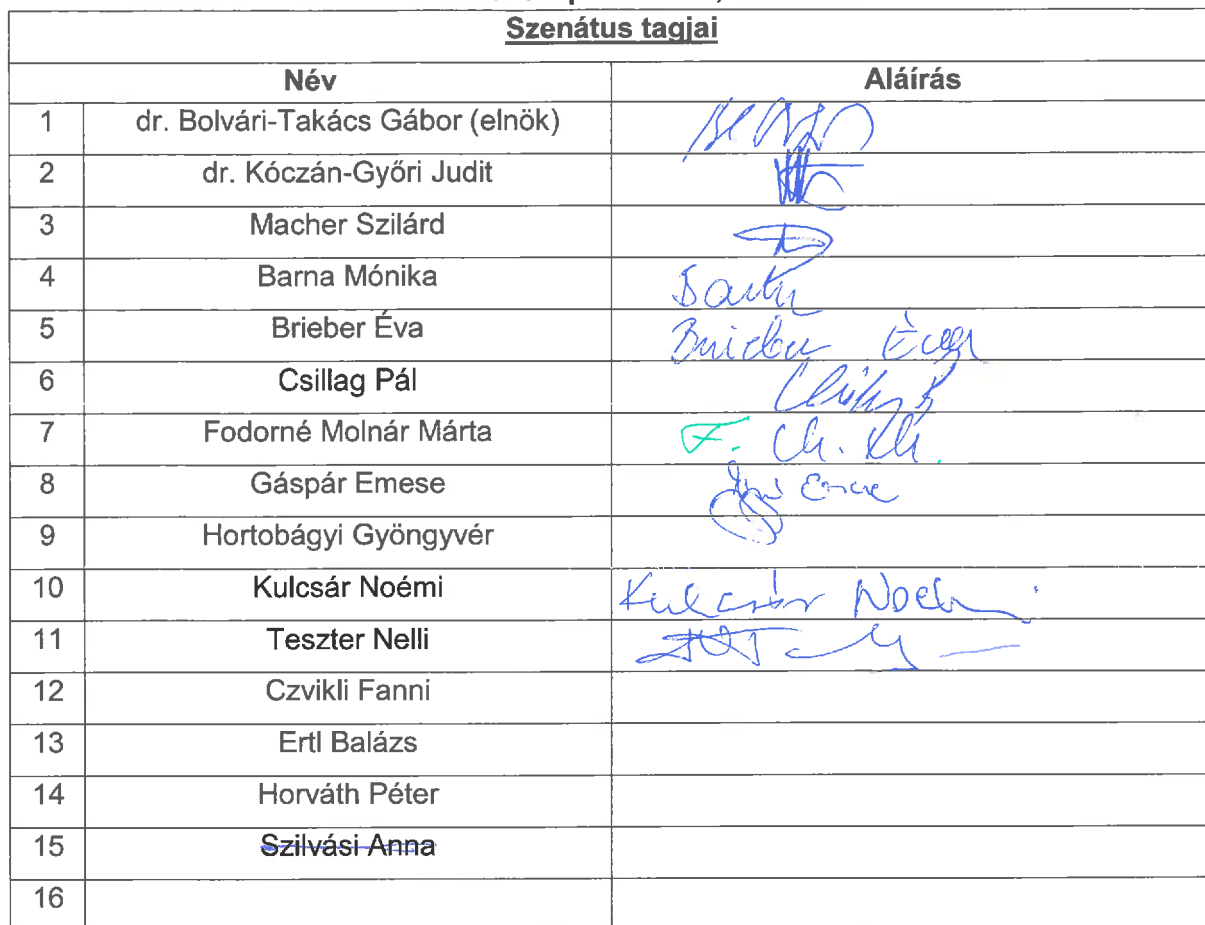 Szenátus tagjai
Név Aláírás
1 dr. Bolvári-Takács Gábor (elnök)
2 dr. Kóczán-Győri Judit
3 Macher Szilárd
4 Barna Mónika
5 Brieber Éva Brieber Éva
6 Csillag Pál
7 Fodorné Molnár Márta F.
8 Gáspár Emese Emese
9 Hortobágyi Gyöngyvér
10 Kulcsár Noémi Kulcsár Noémi
11 Teszter Nelli
12 Czvikli Fanni
13 Ertl Balázs
14 Horváth Péter
15 Szilvási Anna
16